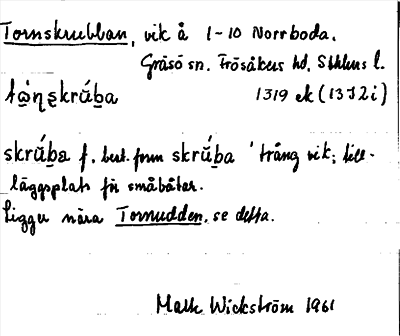 Tornskrubban, vik å 1-10 Norrboda.
Gräsö sn. Frösåkers hd. Sthlms l.
skrúb̲a 1319 ek (13 I 2 i)
skrúb̲a f. best. form skrúb̲a 'trång vik; till-
läggsplats för småbåtar.
Ligger nära Tornudden, se detta.
Mats Wickström 1961